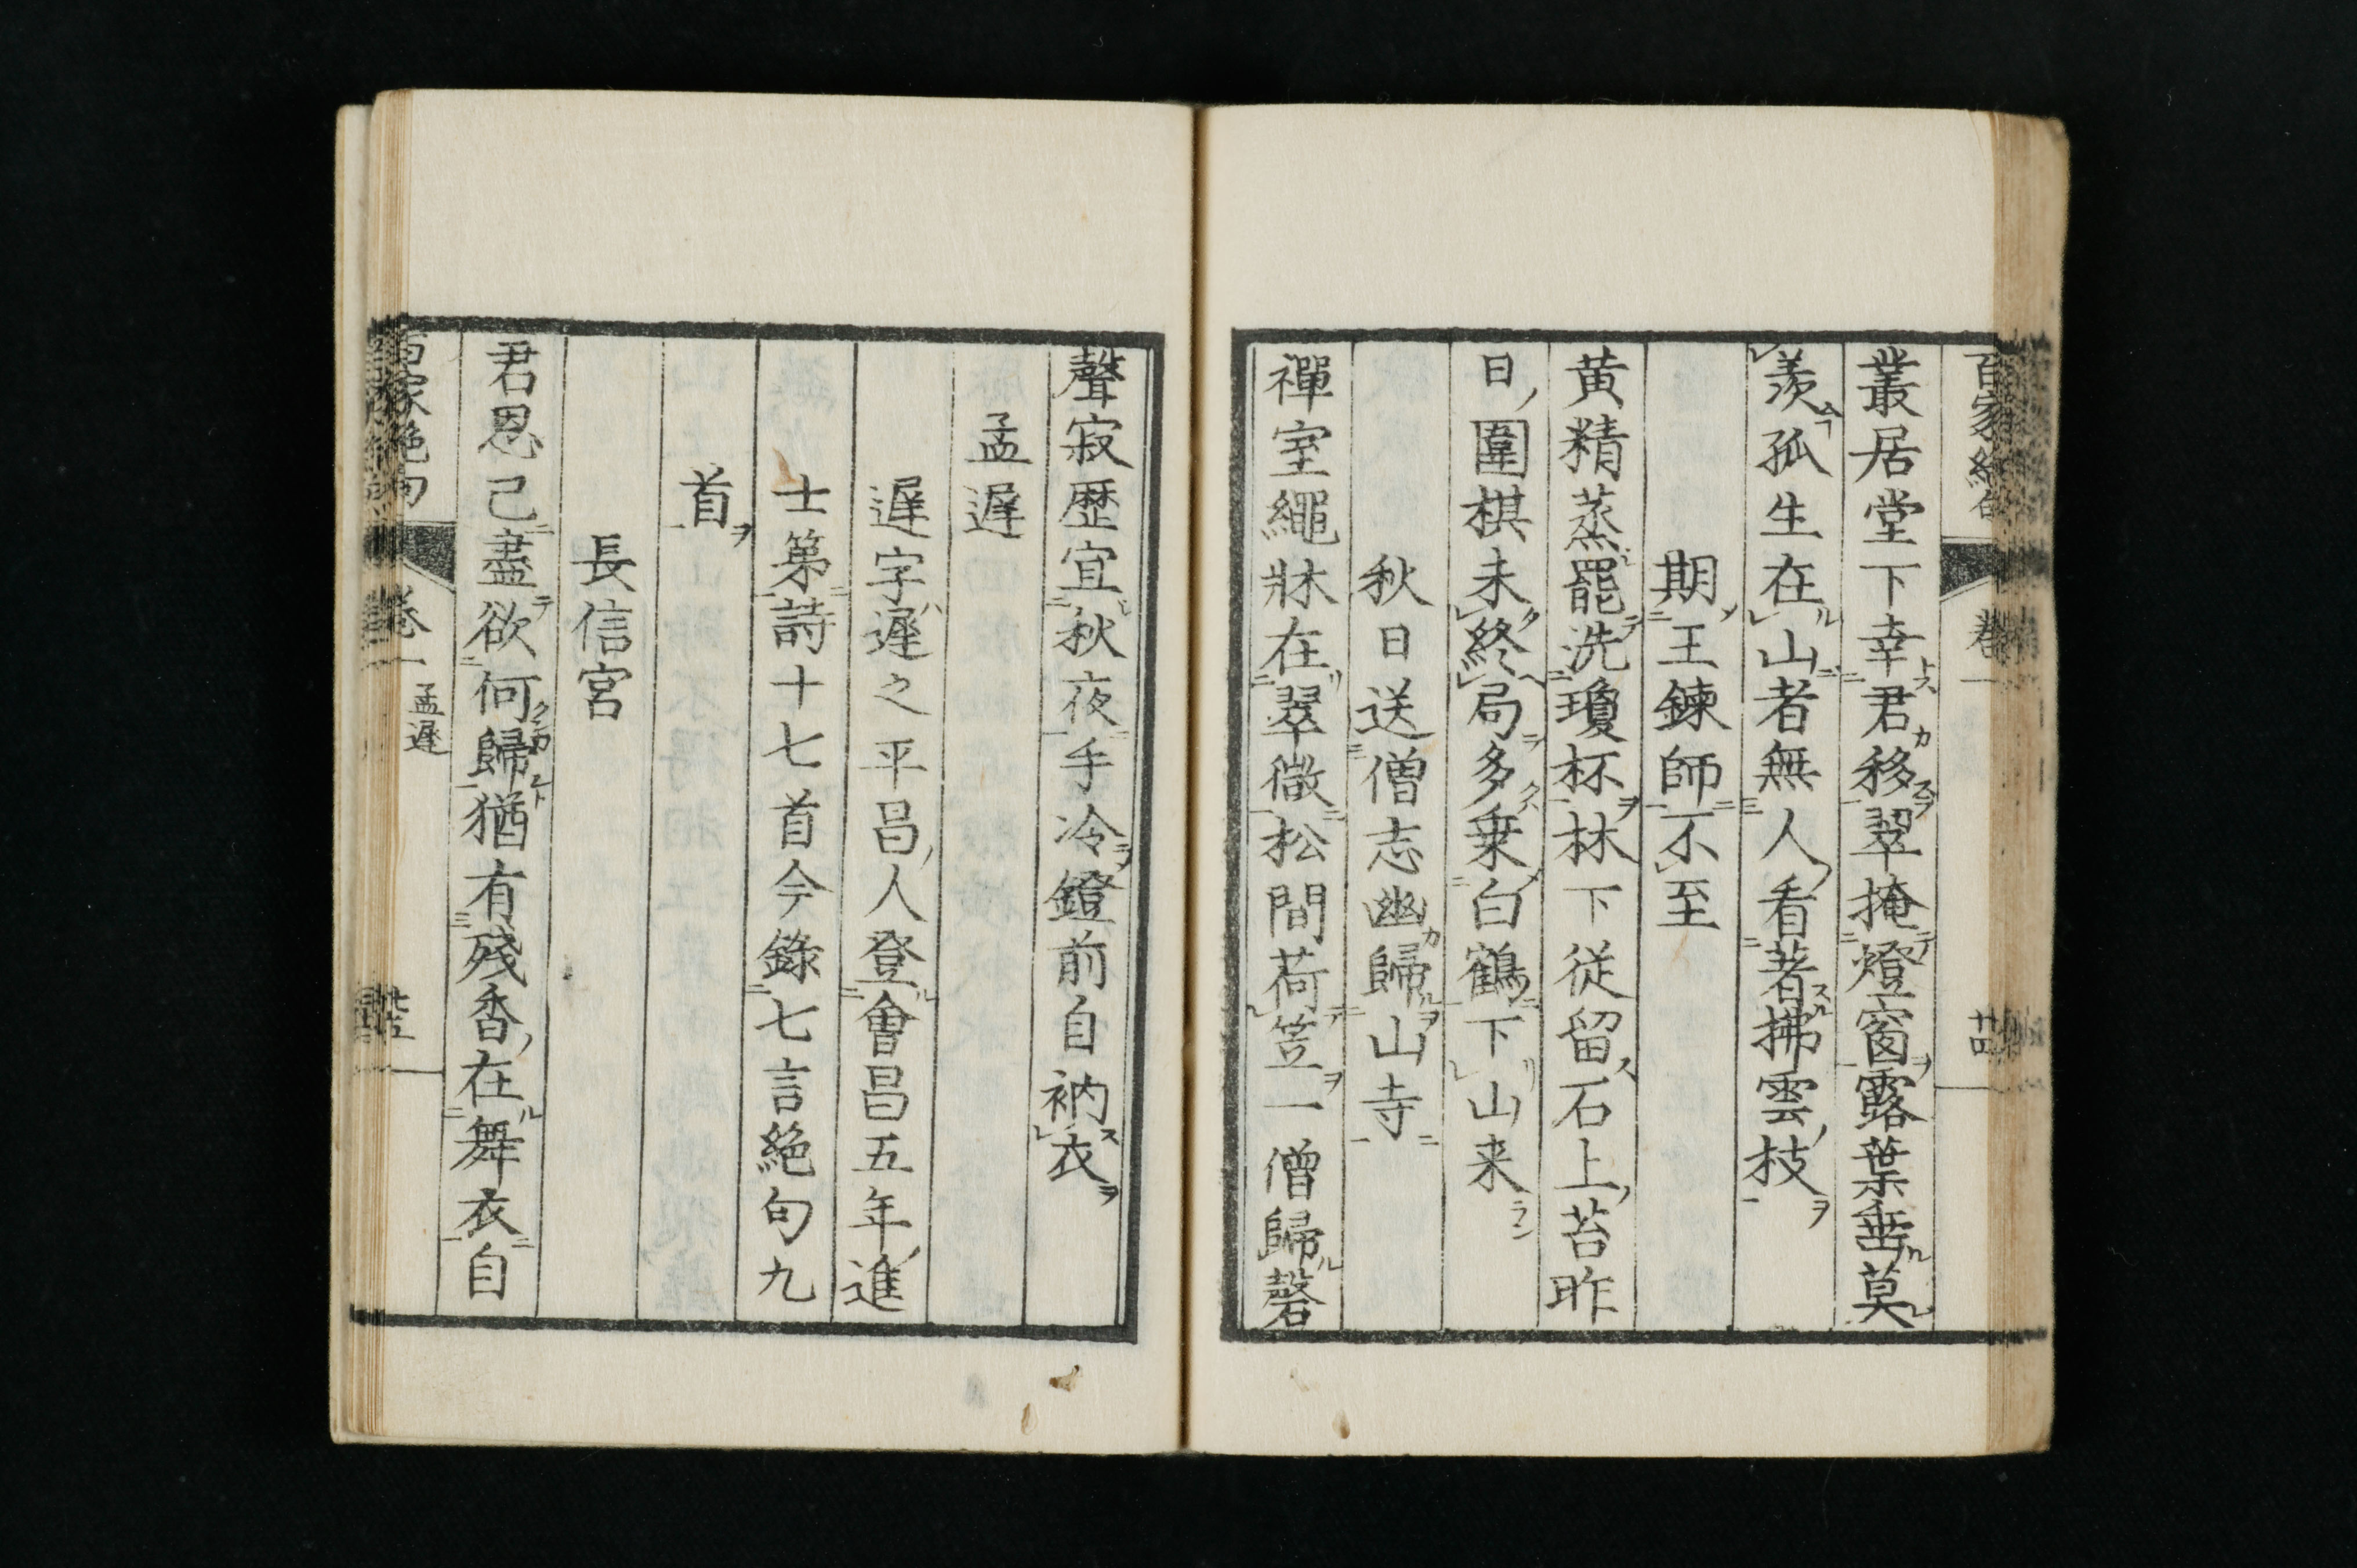 百家絶句
卷一
廿四
叢居堂下幸君移翠掩燈窗露葉垂莫
羨孤生在山者無人看著拂雲枝
期王鍊師不至
黄精蒸罷洗瓊杯林下從留石上苔昨
日圍棋未終局多乗白鶴下山来
秋日送僧志幽歸山寺
禪室繩牀在翠微松間荷笠一僧歸磬
聲寂歴宜秋夜手冷鐙前自衲衣
孟遲
遲字遲之平昌人登會昌五年進
士第詩十七首今錄七言絶句九
首
長信宮
君恩已盡欲何歸猶有殘香在舞衣自
百家絶句
卷一
孟遲
廿五